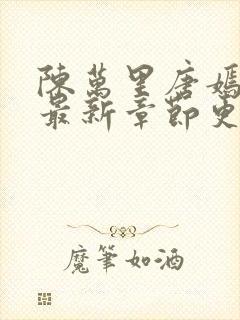 陳萬里唐嫣
最新章節更
魔筆如酒